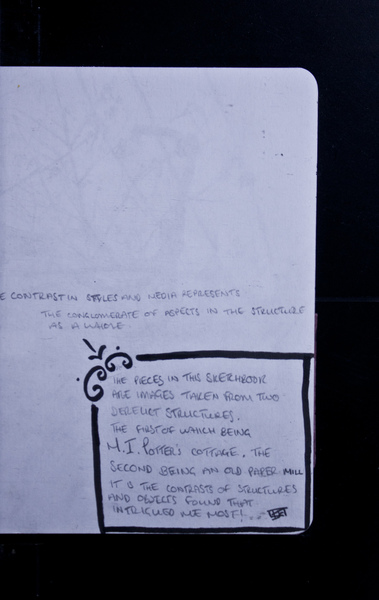 E CONTRAST IN STYLES AND MEDIA REPRESENTS
THE CONGLOMERATE OF ASPECTS IN THE STRUCTURE
AS A WHOLE.
THE PIECES IN THIS SKETCHBOOK
ARE IMAGES TAKEN FROM TWO
DERELICT STRUCTURES.
THE FIRST OF WHICH BEING
M.I. POTTER'S COTTAGE. THE
SECOND BEING AN OLD PAPER MILL
IT IS THE CONTRASTS OF STRUCTURES
AND OBJECTS FOUND THAT
INTRIGUED ME MOST!...